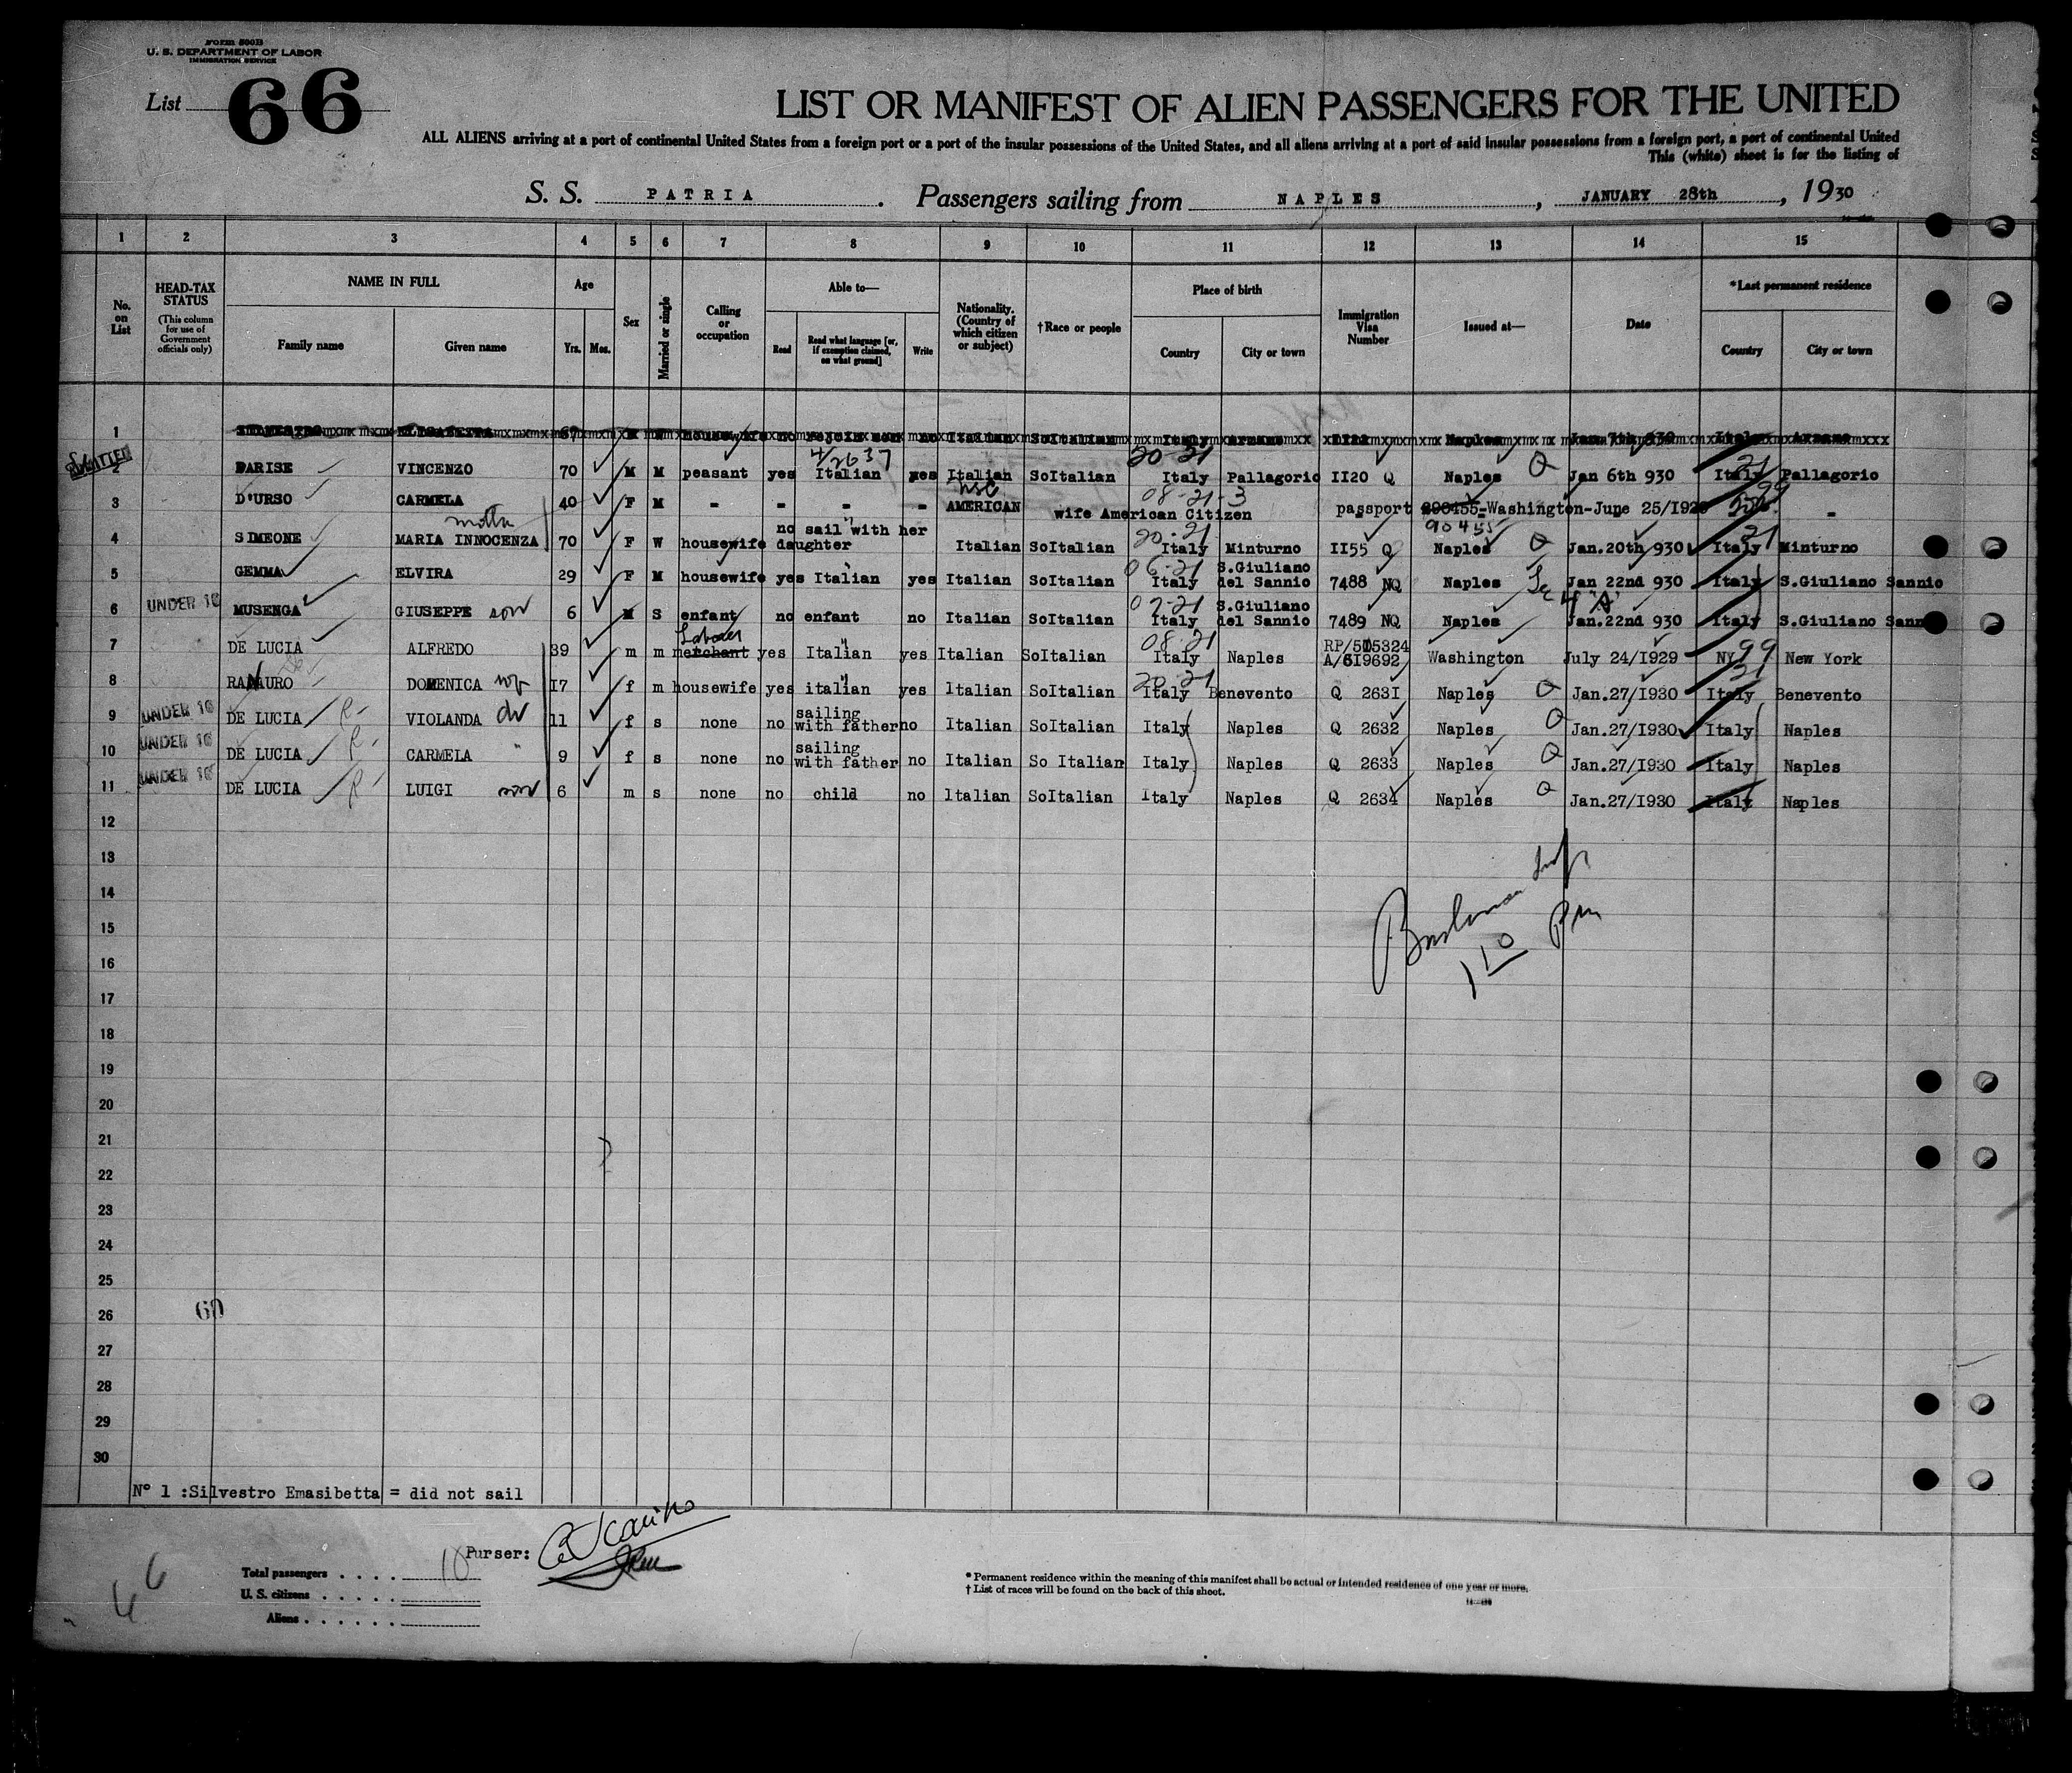 Form 500B
U. S. DEPARTMENT OF LABOR
IMMIGRATION SERVICE
List 66
LIST OR MANIFEST OF ALIEN PASSENGERS FOR THE UNITED
ALL ALIENS arriving at a port of continental United States from a foreign port or a port of the insular possessions of the United States, and all aliens arriving at a port of said insular possessions from a foreign port, a port of continental United
This (white) sheet is for the listing of
S. S. PATRIA . Passengers sailing from NAPLES , JANUARY 28th , 1930
1 2 3 4 5 6 7 8 9 10 11 12 13 14 15
No. on List
HEAD-TAX STATUS (This column for use of Government officials only)
NAME IN FULL
Family name Given name
Age
Yrs. Mos.
Sex
Married or single
Calling or occupation
Able to—
Read
Read what language [or, if exemption claimed, on what ground]
Write
Nationality. (Country of which citizen or subject)
†Race or people
Place of birth
Country City or town
Immigration Visa Number
Issued at—
Date
*Last permanent residence
Country City or town
1 67 housewife no rejoin son no Italian SoItalian Italy Naples Jan 7th 930 Italy
2 PARISE VINCENZO 70 M M peasant yes 4/2637 Italian yes Italian SoItalian 20-21 Italy Pallagorio II20 Q Naples Q Jan 6th 930 Italy 21 Pallagorio
3 D'URSO CARMELA 40 F M - - - - USC AMERICAN wife American Citizen 08-21-3 passport 290455-Washington-June 25/192 99 -
90455
4 SIMEONE MARIA INNOCENZA mother 70 F W housewife no sail with her daughter Italian SoItalian 20-21 Italy Minturno II55 Q Naples Q Jan.20th 930 Italy 21 Minturno
5 GEMMA ELVIRA 29 F M housewife yes Italian yes Italian SoItalian 06-21 Italy S.Giuliano del Sannio 7488 NQ Naples Jan 22nd 930 Italy S.Giuliano Sannio
Sec 4 "A"
6 UNDER 16 MUSENGA GIUSEPPE son 6 M S enfant no enfant no Italian SoItalian 07-21 Italy S.Giuliano del Sannio 7489 NQ Naples Jan.22nd 930 Italy S.Giuliano Sann
7 DE LUCIA ALFREDO 39 m m Laborer merchant yes Italian yes Italian SoItalian 08-21 Italy Naples RP/505324 A/619692 Washington July 24/I929 NY 99 New York
8 DOMENICA wf I7 f m housewife yes italian yes Italian SoItalian 20-21 Italy Benevento Q 263I Naples Q Jan.27/I930 Italy 21 Benevento
9 UNDER 16 DE LUCIA R- VIOLANDA dr 11 f s none no sailing with father no Italian SoItalian Italy Naples Q 2632 Naples Q Jan.27/I930 Italy Naples
10 UNDER 16 DE LUCIA R- CARMELA " 9 f s none no sailing with father no Italian So Italian Italy Naples Q 2633 Naples Q Jan.27/I930 Italy Naples
11 UNDER 16 DE LUCIA R- LUIGI son 6 m s none no child no Italian SoItalian Italy Naples Q 2634 Naples Q Jan.27/I930 Italy Naples
12
13
14
15
16
17
18
19
20
21
22
23
24
25
26
27
28
29
30
1 10 Pm
60
N° 1 :Silvestro Emasibetta = did not sail
Purser:
Total passengers . . . . 10
U. S. citizens . . . . .
Aliens . . . . . .
* Permanent residence within the meaning of this manifest shall be actual or intended residence of one year or more.
† List of races will be found on the back of this sheet.